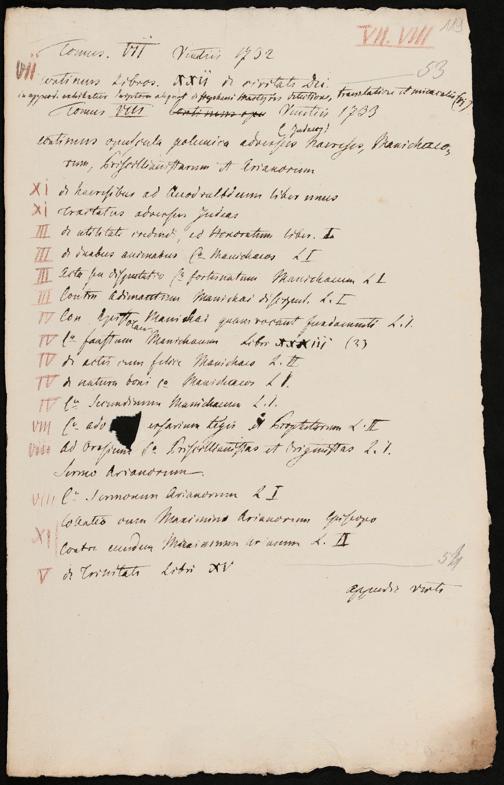 VII. VIII
113
Tomus. VII Venetiis 1732
53
VII continens Libros. XXII de civitate Dei
in append. exhibentur scriptura aliquot de Stephani Martyris translatione et miraculis
Tomus VIII Venetiis 1733
C. Judaeos
continens opuscula polemica adversus haereses, Manichaeo
rum, Priscillianistarum et Arianorum
XI de haeresibus ad Quodvultdeum liber unus
XI Tractatus adversus Judaeos
III de utilitate credendi, ad Honoratum liber. I
III de duabus animabus Cᵃ Manichaeos L I
III Acta seu disputatio Cᵃ fortunatum Manichaeum L I
III Contra adimantum Manichaei discipul. L. I
IV Con Epistolam Manichaei quam vocant fundamenti L. I.
IV Cᵃ faustum Manichaeum Libri XXXIII (3)
IV de actis cum felice Manichaeo L. II
IV de natura boni Cᵃ Manichaeos L I.
IV Cᵃ Secundinum Manichaeum L. I.
VIII Cᵃ adv ersarium Legis et Prophetarum L. II
VIII ad Orosium Cᵃ Priscillianistas et Origenistas L. I.
Sermo Arianorum
VIII Cᵃ Sermonem Arianorum L I
XI collatio cum Maximino Arianorum episcopo
contra eundem Maximinum arianum L. II
V de Trinitate Libri XV
54
appendix